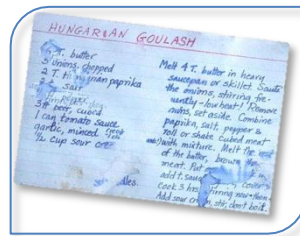 HUNGARIAN GOULASH
T. butter
5 onions, chopped
2 T. paprika
salt
3# beef, cubed
1 can tomato sauce
garlic, minced
½ cup sour
Melt 4 T. butter in heavy
saucepan or skillet. Sauté
the onions, stirring fre-
quently - low heat! Remove
onions, set aside. Combine
paprika, salt, pepper &
roll or shake cubed meat
with mixture. Melt the
of the butter, brown the
meat. Put cover
add t. sauce
Cook 3 hrs stirring now & then
Add sour stir, don't boil.
noodles.